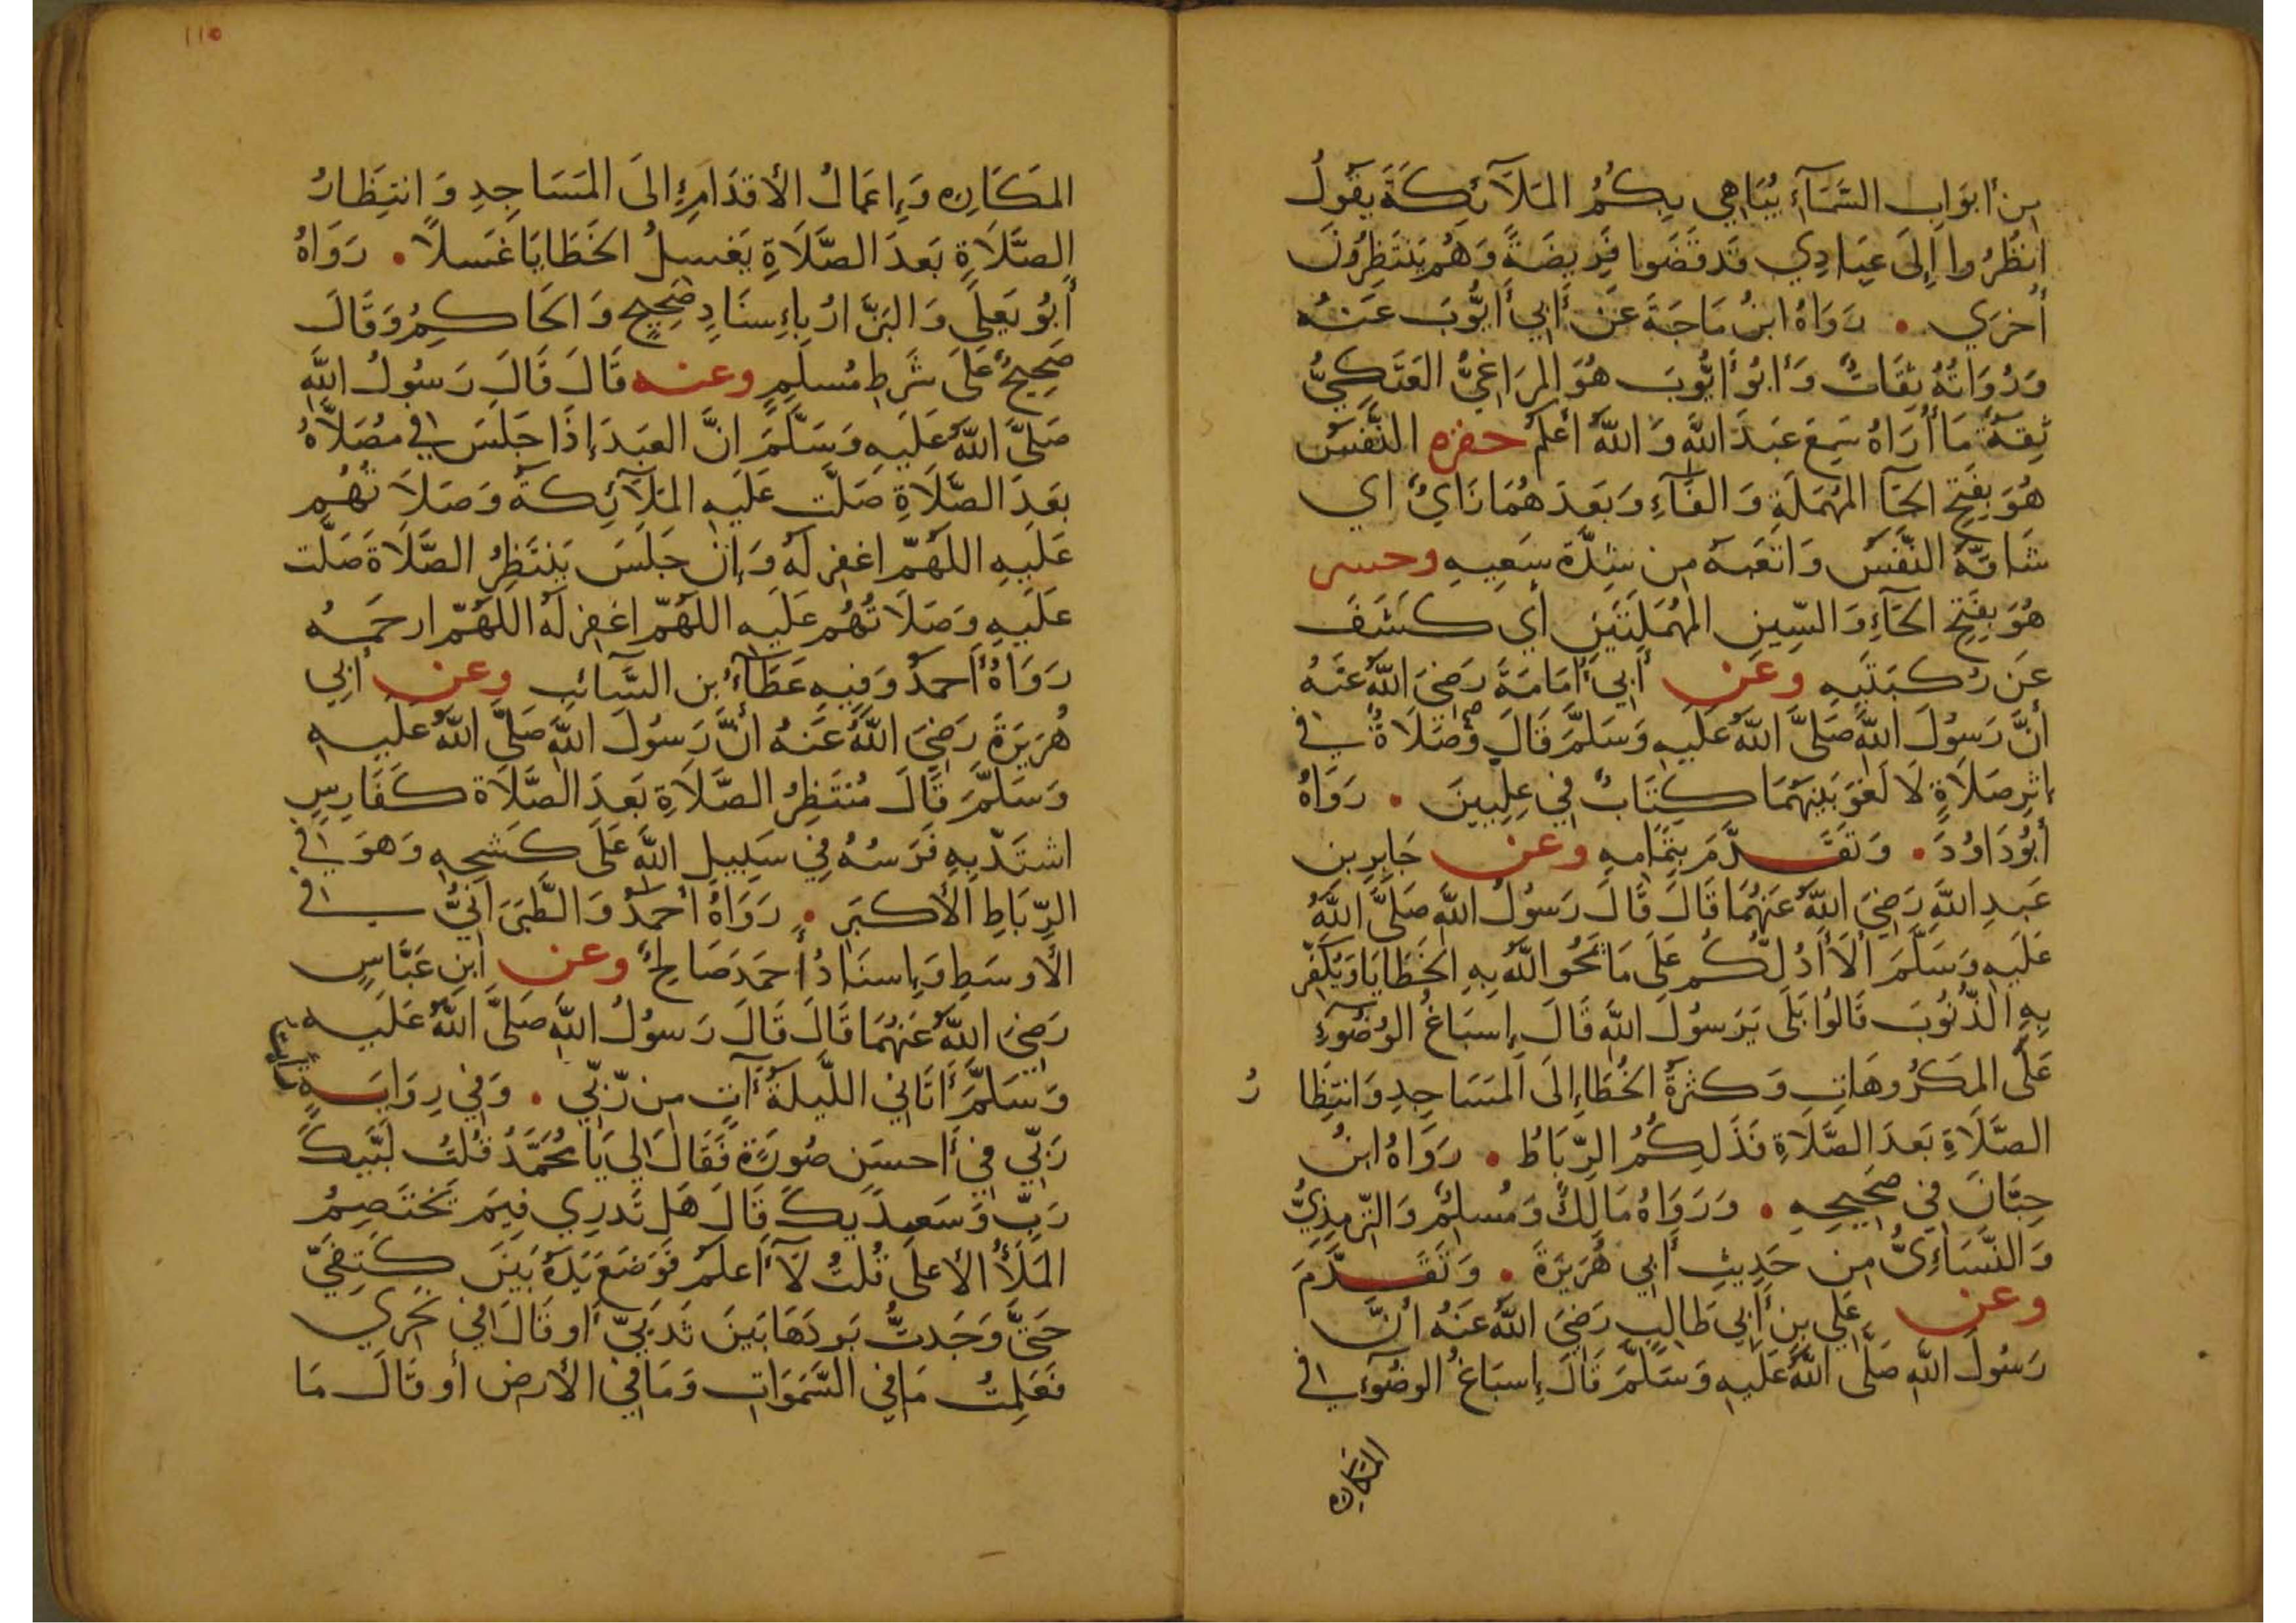 مِن أبوَابِ السَّمَآءِ يُبَاهِي بِكُمُ المَلَآئِكَةَ يَقُولُ
انظُرُوا إِلَى عِبَادِي قَد قَضَوا فَرِيضَةً وَهُم يَنتَظِرُونَ
أُخرَى . رَوَاهُ ابنُ مَاجَةَ عَن أَبِي أَيُّوبَ عَنهُ
وَرُوَاتُهُ ثِقَاتٌ وَأَبُو أَيُّوبَ هُوَ المَرَاغِيُّ العَتَكِيُّ
ثِقَةٌ مَا أُرَاهُ سَمِعَ عَبدَ اللَّهِ وَاللَّهُ أَعلَمُ حفزه النَّفَسُ
هُوَ بِفَتحِ الحَآ المُهمَلَةِ وَالفَآءِ وَبَعدَهُمَا زَايٌ اي
سَاقَهُ النَّفَسُ وَاتعَبَهُ مِن شِدَّة سَعيِهِ وحسر
هُوَ بِفَتحِ الحَآءِ وَالسِّينِ المُهمَلَتَينِ أَي كَشَفَ
عَن رُكبَتَيهِ وعَن أَبِي أُمَامَةَ رَضِيَ اللَّهُ عَنهُ
أَنَّ رَسُولَ اللَّهِ صَلَّى اللَّهُ عَلَيهِ وَسَلَّمَ قَالَ وَصَلَاةٌ فِي
اثرِ صَلَاةٍ لَا لَغوَ بَينَهُمَا كِتَابٌ فِي عِلِّيينَ . رَوَاهُ
أَبُو دَاوُدَ . وَتَقَدَّمَ بِتَمَامِهِ وعن جَابِرِ بن
عَبدِ اللَّهِ رَضِيَ اللَّهُ عَنهُمَا قَالَ قَالَ رَسُولُ اللَّهِ صَلَّى اللَّهُ
عَلَيهِ وَسَلَّمَ أَلَا أَدُلُّكُم عَلَى مَا يَمحُو اللَّهُ بِهِ الخَطَايَا وَيُكَفِّر
بِهِ الذُّنُوبَ قَالُوا بَلَى يَرَسُولَ اللَّهِ قَالَ إِسبَاغُ الوُضُوءِ
عَلَى المَكرُوهَاتِ وَكَثرَةُ الخُطَاءِ إِلَى المَسَاجِدِ وَانتِظَا رُ
الصَّلَاةِ بَعدَ الصَّلَاةِ فَذَلِكُمُ الرِّبَاطُ . رَوَاهُ ابنُ
حِبَّانَ فِي صَحِيحِهِ . وَرَوَاهُ مَالِكٌ وَمُسلِمٌ وَالتِّرمِذِيُّ
وَالنَّسَاءِيُّ مِن حَدِيثِ أَبِي هُرَيرَةَ . وَتَقَدَّمَ
وعن عَلِي بنِ أَبِي طَالِبٍ رَضِيَ اللَّهُ عَنهُ أَنَّ
رَسُولَ اللَّهِ صَلَّى اللَّهُ عَلَيهِ وَسَلَّمَ قَالَ إِسبَاغُ الوضُوءِ فِي
المَكَارِه
١١٥
المَكَارِه وَإِعمَالُ الأَقدَامِ إِلَى المَسَاجِدِ وَانتِظَارُ
الصَّلَاةِ بَعدَ الصَّلَاةِ يَغسِلُ الخَطَايَا غَسلًا . رَوَاهُ
أَبُو يَعلَى وَالبَزَّارُ بِإِسنَادٍ صَحِيحٍ وَالحَاكِمُ وَقَالَ
صَحِيحٌ عَلَى شَرطِ مُسلِمٍ وعنه قَالَ قَالَ رَسُولُ اللَّهِ
صَلَّى اللَّهُ عَلَيهِ وَسَلَّمَ انَّ العَبدَ إِذَا جَلَسَ فِي مُصَلَّاهُ
بَعدَ الصَّلَاةِ صَلَّت عَلَيهِ المَلَآئِكَةُ وَصَلَاتُهُم
عَلَيهِ اللَّهُمَّ اغفِر لَهُ وَإِن جَلَسَ يَنتَظِرُ الصَّلَاةَ صَلَّت
عَلَيهِ وَصَلَاتُهُم عَلَيهِ اللَّهُمَّ اغفِر لَهُ اللَّهُمَّ ارحَمهُ
رَوَاهُ أَحمَدُ وَفِيهِ عَطَآءُ بن السَّائِبِ وعن أَبِي
هُرَيرَةَ رَضِيَ اللَّهُ عَنهُ أَنَّ رَسُولَ اللَّهِ صَلَّى اللَّهُ عَلَيهِ
وَسَلَّمَ قَالَ مُنتَظِرُ الصَّلَاةِ بَعدَ الصَّلَاة كَفَارِسٍ
اشتَدَّ بِهِ فَرَسُهُ فِي سَبِيلِ اللَّهِ عَلَى كَشحِهِ وَهوَ فِي
الرِّبَاطِ الأَكبَرِ . رَوَاهُ أَحمَدُ وَالطَّبَرَانِيُّ فِي
الأَوسَطِ وَإِسنَادُ أَحمَدَ صَالِحٌ وعن ابنِ عَبَّاسٍ
رَضِيَ اللَّهُ عَنهُمَا قَالَ قَالَ رَسُولُ اللَّهِ صَلَّى اللَّهُ عَلَيهِ
وَسَلَّمَ أَتَانِي اللَّيلَةَ آتٍ مِن رَّبِّي . وَفِي رِوَايَةٍ
رَبِّي فِي أَحسَنِ صُورَةٍ فَقَالَ لِي يَا مُحَمَّدُ قُلتُ لَبَّيكَ
رَبِّ وَسَعدَيكَ قَالَ هَل تَدرِي فِيمَ يَختَصِمُ
المَلَأُ الأَعلَى قُلتُ لَآ أَعلَمُ فَوَضَعَ يَدَهُ بَينَ كَتِفَيَّ
حَتَّى وَجَدتُّ بَردَهَا بَينَ ثَديَيَّ أَو قَالَ فِي نَحرِي
فَعَلِمتُ مَا فِي السَّمَوَاتِ وَمَا فِي الأَرضِ أَو قَالَ مَا